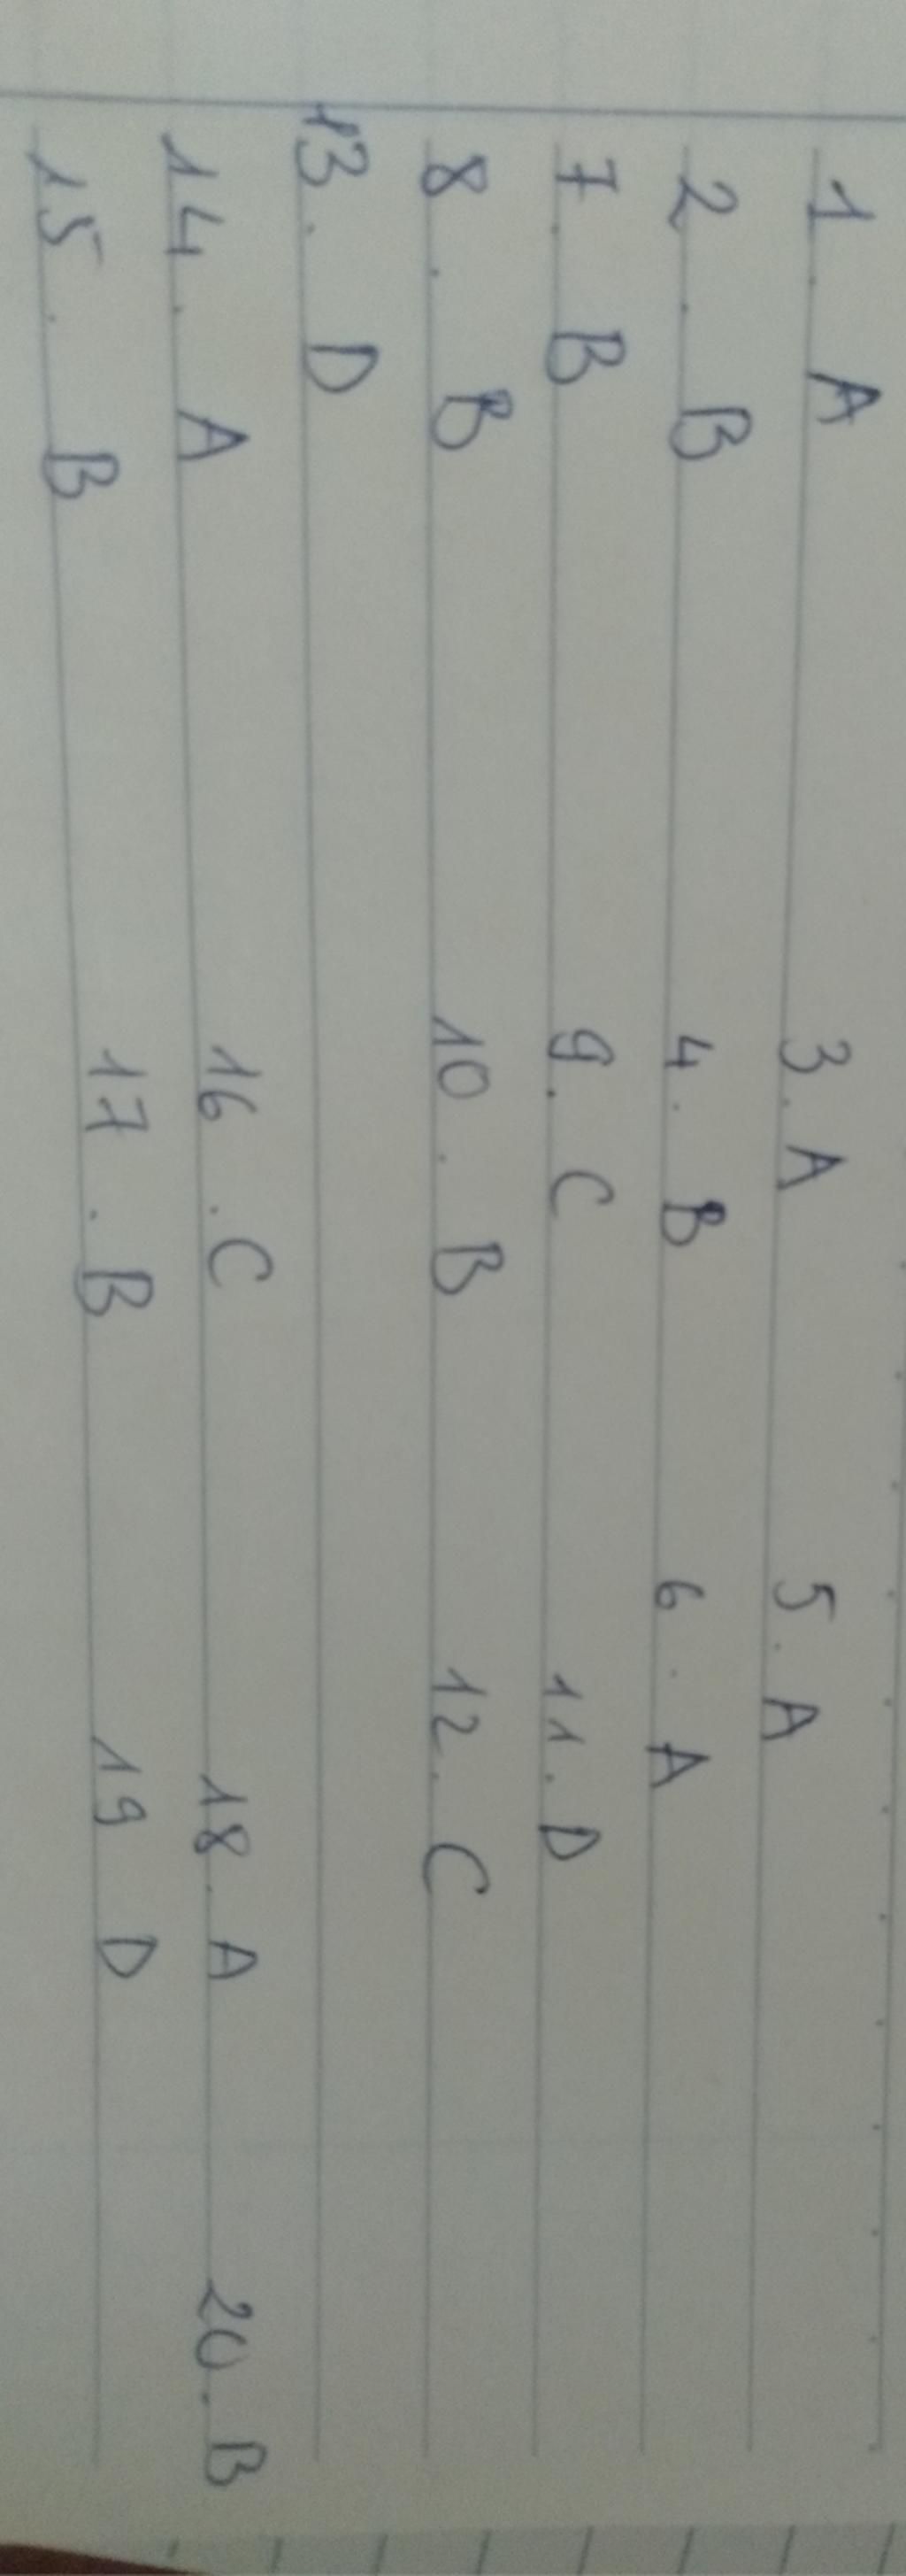 1. A 3. A 5. A
2. B 4. B 6. A
7. B 9. C 11. D
8. B 10. B 12. C
13. D
14. A 16. C 18. A 20. B
15. B 17. B 19 D